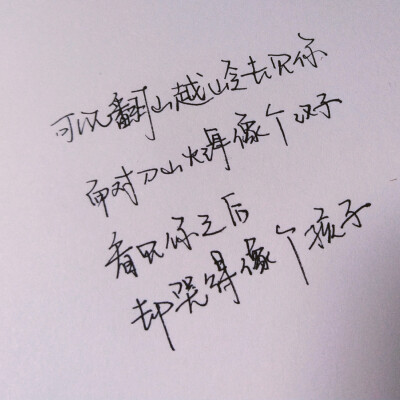 可以翻山越岭去见你
面对刀山火海像个汉子
看见你之后
却哭得像个孩子